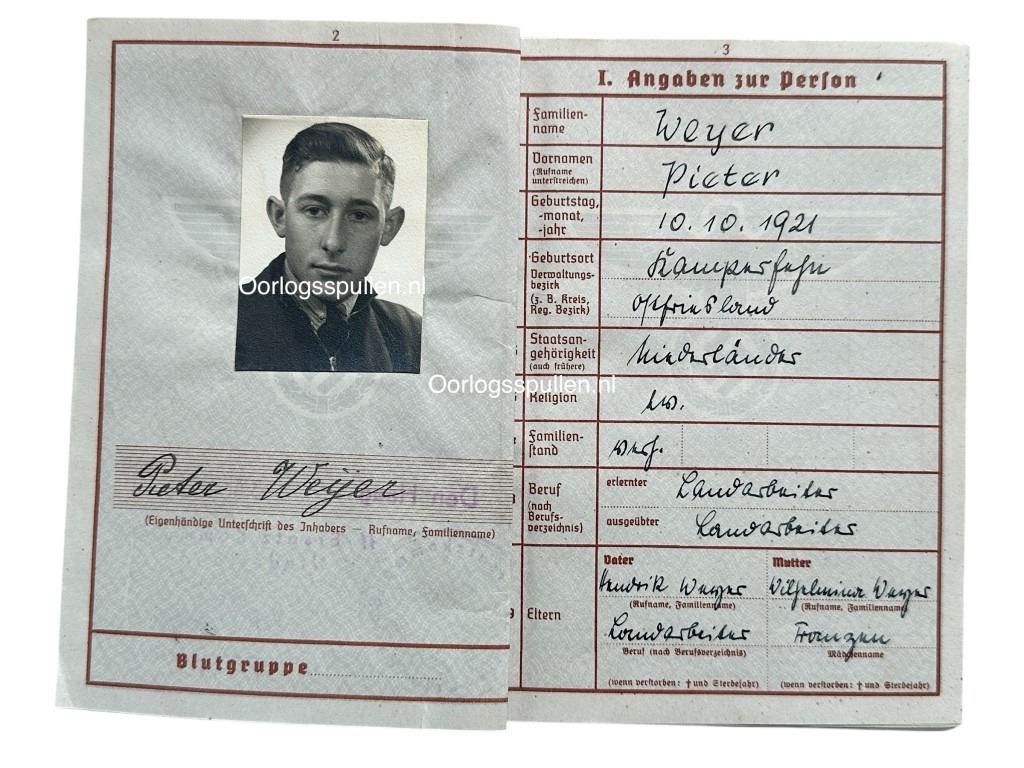 2
Oorlogsspullen.nl
Oorlogsspullen.nl
Pieter Weijer
(Eigenhändige Unterschrift des Inhabers — Rufname, Familienname)
Blutgruppe
3
I. Angaben zur Person
Familien-
name
Weyer
Vornamen
(Rufname
unterstreichen)
Pieter
Geburtstag,
-monat,
-jahr
10.10.1921
Geburtsort
Verwaltungs-
bezirk
(z. B. Kreis,
Reg. Bezirk)
Kamperfehn
Ostfriesland
Staatsan-
gehörigkeit
(auch frühere)
Niederländer
Religion
Familien-
stand
Beruf
(nach
Berufs-
verzeichnis)
erlernter
Landarbeiter
ausgeübter
Landarbeiter
Eltern
Vater
Hendrik Weyer
(Rufname, Familienname)
Landarbeiter
Beruf (nach Berufsverzeichnis)
(wenn verstorben: † und Sterbejahr)
Mutter
Wilhelmina Weyer
(Rufname, Familienname)
Franzen
Mädchenname
(wenn verstorben: † und Sterbejahr)